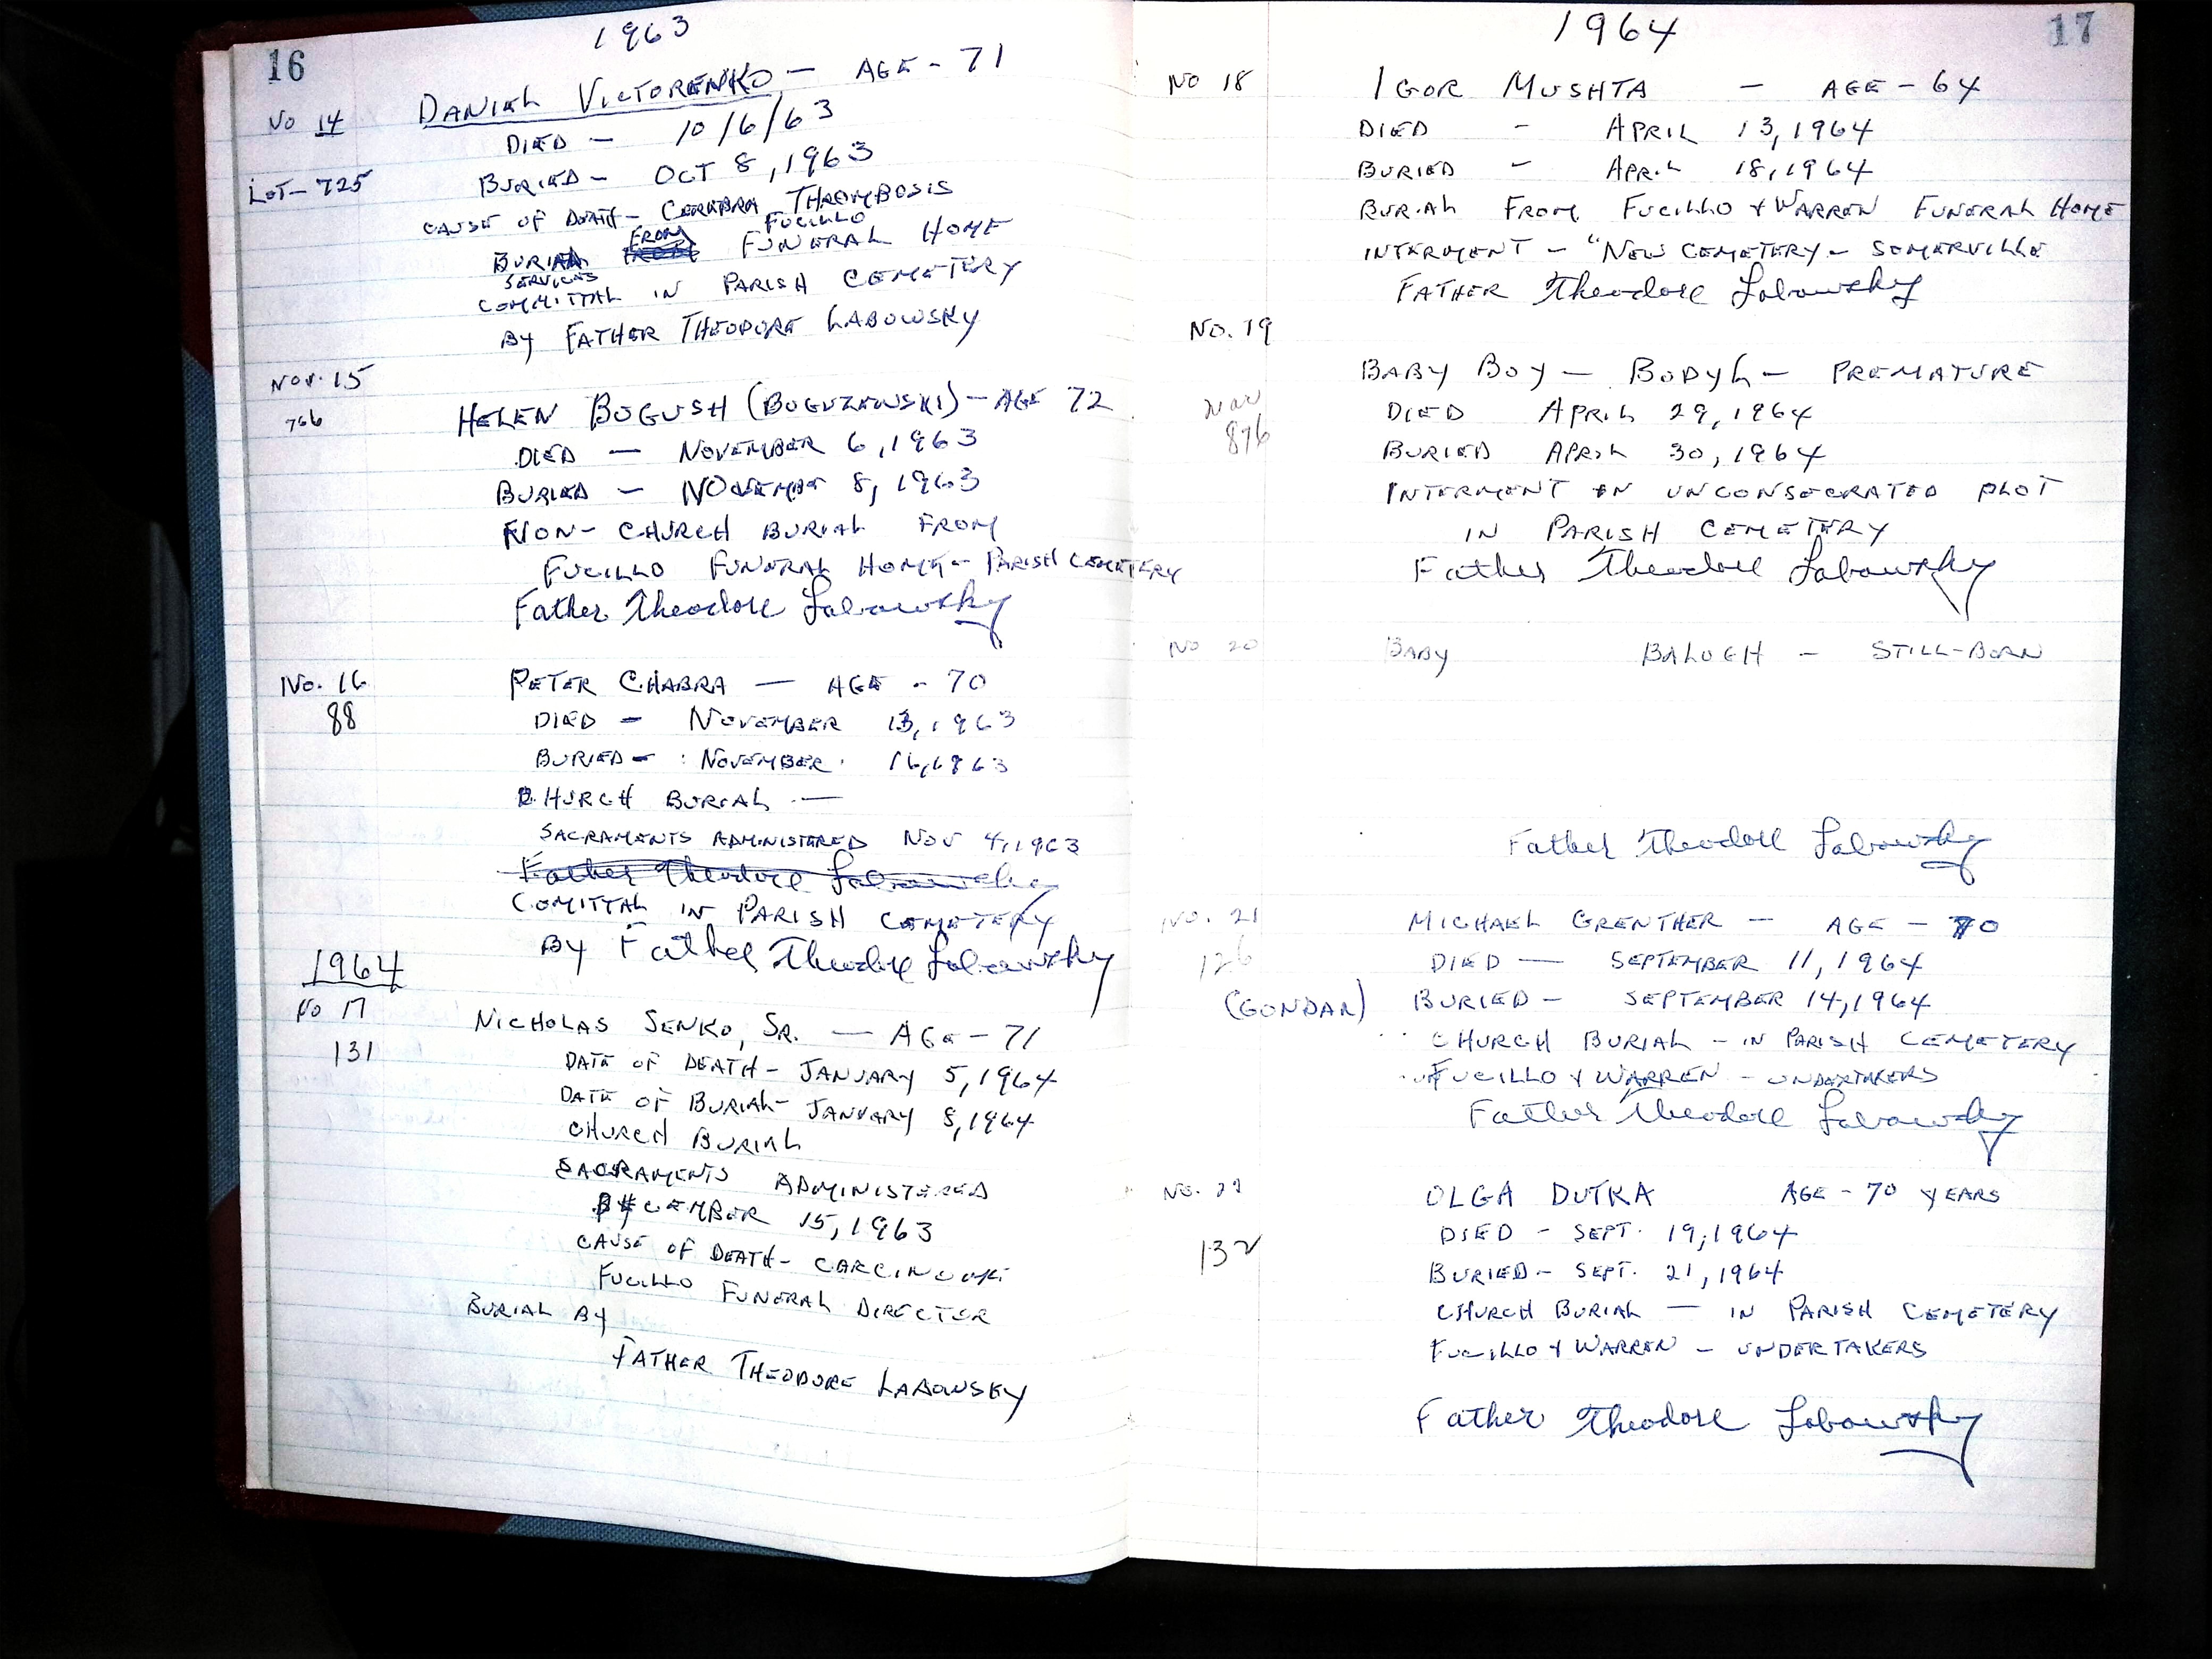 16
1963
No 14
DANIEL VICTORENKO — AGE - 71
DIED — 10/6/63
LOT - 725
BURIED - OCT 8, 1963
CAUSE OF DEATH - CEREBRA THROMBOSIS
BURIAL SERVICES FROM FUCILLO FUNERAL HOME
COMMITTAL IN PARISH CEMETERY
BY FATHER THEODORE LABOWSKY
Nov. 15
766
HELEN BOGUSH (BOGUZEWSKI) - AGE 72
DIED — NOVEMBER 6, 1963
BURIED — NOVEMBR 8, 1963
NON-CHURCH BURIAL FROM
FUCILLO FUNERAL HOME - PARISH CEMETERY
Father Theodore Labowsky
No. 16
88
PETER CHABRA — AGE - 70
DIED - NOVEMBER 13, 1963
BURIED - NOVEMBER 16, 1963
CHURCH BURIAL —
SACRAMENTS ADMINISTERED NOV 4, 1963
Father Theodore Labowsky
COMITTAL IN PARISH CEMETERY
BY Father Theodore Labowsky
1964
No 17
131
NICHOLAS SENKO, SR. — AGE - 71
DATE OF DEATH - JANUARY 5, 1964
DATE OF BURIAL - JANUARY 8, 1964
CHURCH BURIAL
SACRAMENTS ADMINISTERED
DECEMBER 15, 1963
CAUSE OF DEATH - CARCINOMA
FUCILLO FUNERAL DIRECTOR
BURIAL BY
FATHER THEODORE LABOWSKY
1964
17
No 18
IGOR MUSHTA — AGE - 64
DIED - APRIL 13, 1964
BURIED - APRIL 18, 1964
BURIAL FROM FUCILLO & WARREN FUNERAL HOME
INTERMENT - "NEW CEMETERY - SOMERVILLE
FATHER Theodore Labowsky
No. 19
BABY BOY — BODYL — PREMATURE
876
DIED APRIL 29, 1964
BURIED APRIL 30, 1964
INTERMENT IN UNCONSECRATED PLOT
IN PARISH CEMETERY
Father Theodore Labowsky
No 20
BABY BALOGH — STILL-BORN
Father Theodore Labowsky
No. 21
126
(GONDAR)
MICHAEL GRENTHER — AGE - 70
DIED — SEPTEMBER 11, 1964
BURIED - SEPTEMBER 14, 1964
CHURCH BURIAL - IN PARISH CEMETERY
FUCILLO & WARREN - UNDERTAKERS
Father Theodore Labowsky
No. 22
132
OLGA DUTKA AGE - 70 YEARS
DIED - SEPT. 19, 1964
BURIED - SEPT. 21, 1964
CHURCH BURIAL — IN PARISH CEMETERY
FUCILLO & WARREN - UNDERTAKERS
Father Theodore Labowsky